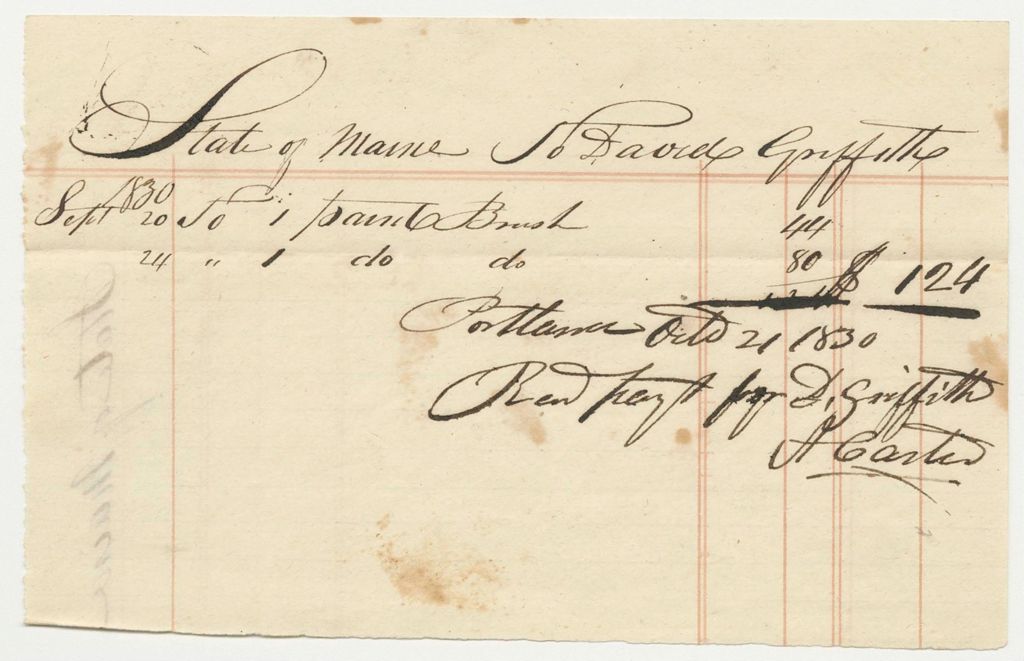 State of Maine To David Griffith
1830
Sept 20 To 1 paint Brush 44
24 " 1 do do 80
$ 124
Portland Octo 21 1830
Recd payt for D. Griffith
A Carter
State of Maine